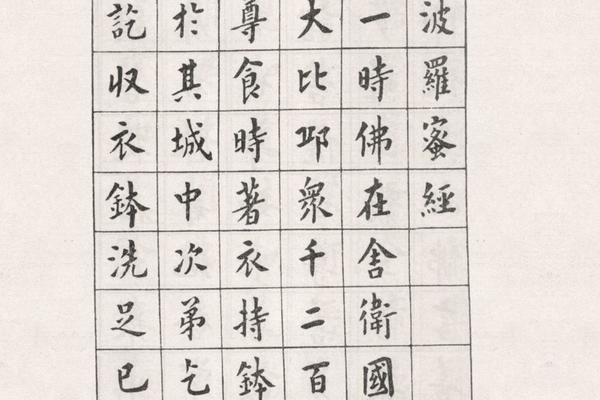 波羅蜜經
一時佛在舍衛國
大比邱眾千二百
尊食時著衣持鉢
於其城中次第乞
訖収衣鉢洗足已